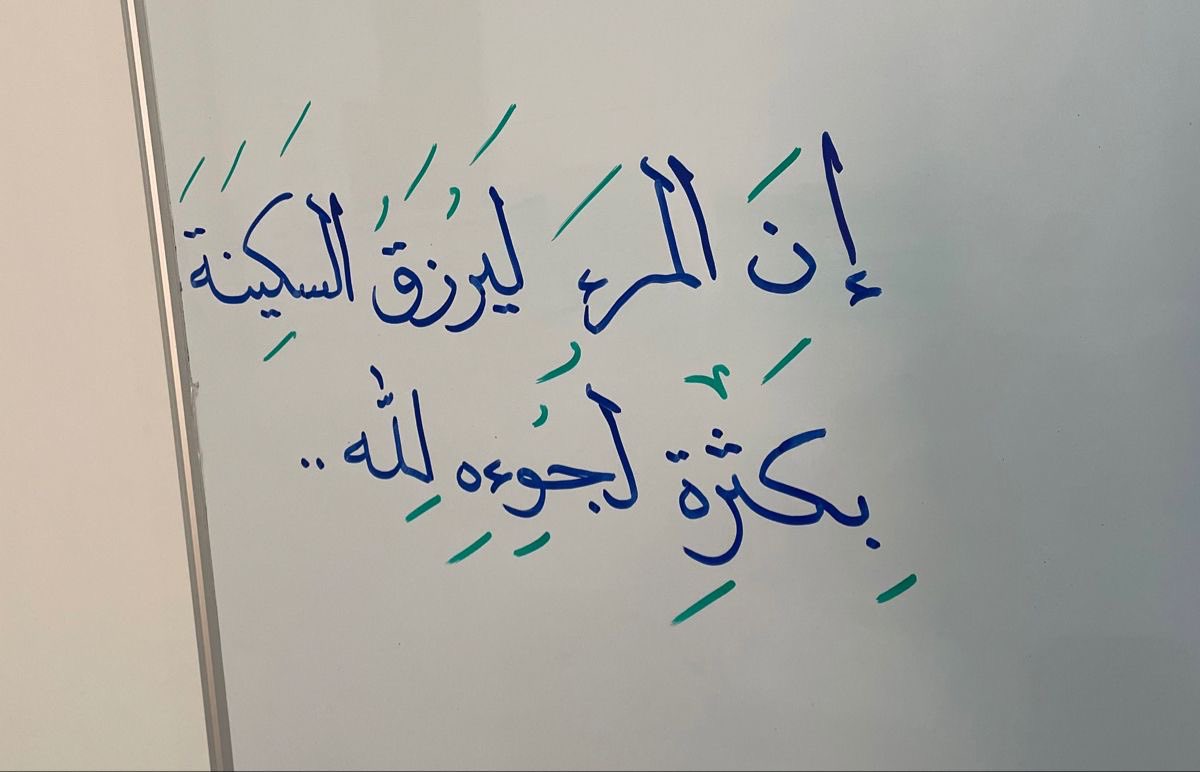 إنَ المرءَ لَيُرزَقُ السَكِينَةَ
بِكَثْرِةِ لُجُوِءِه لِله ..